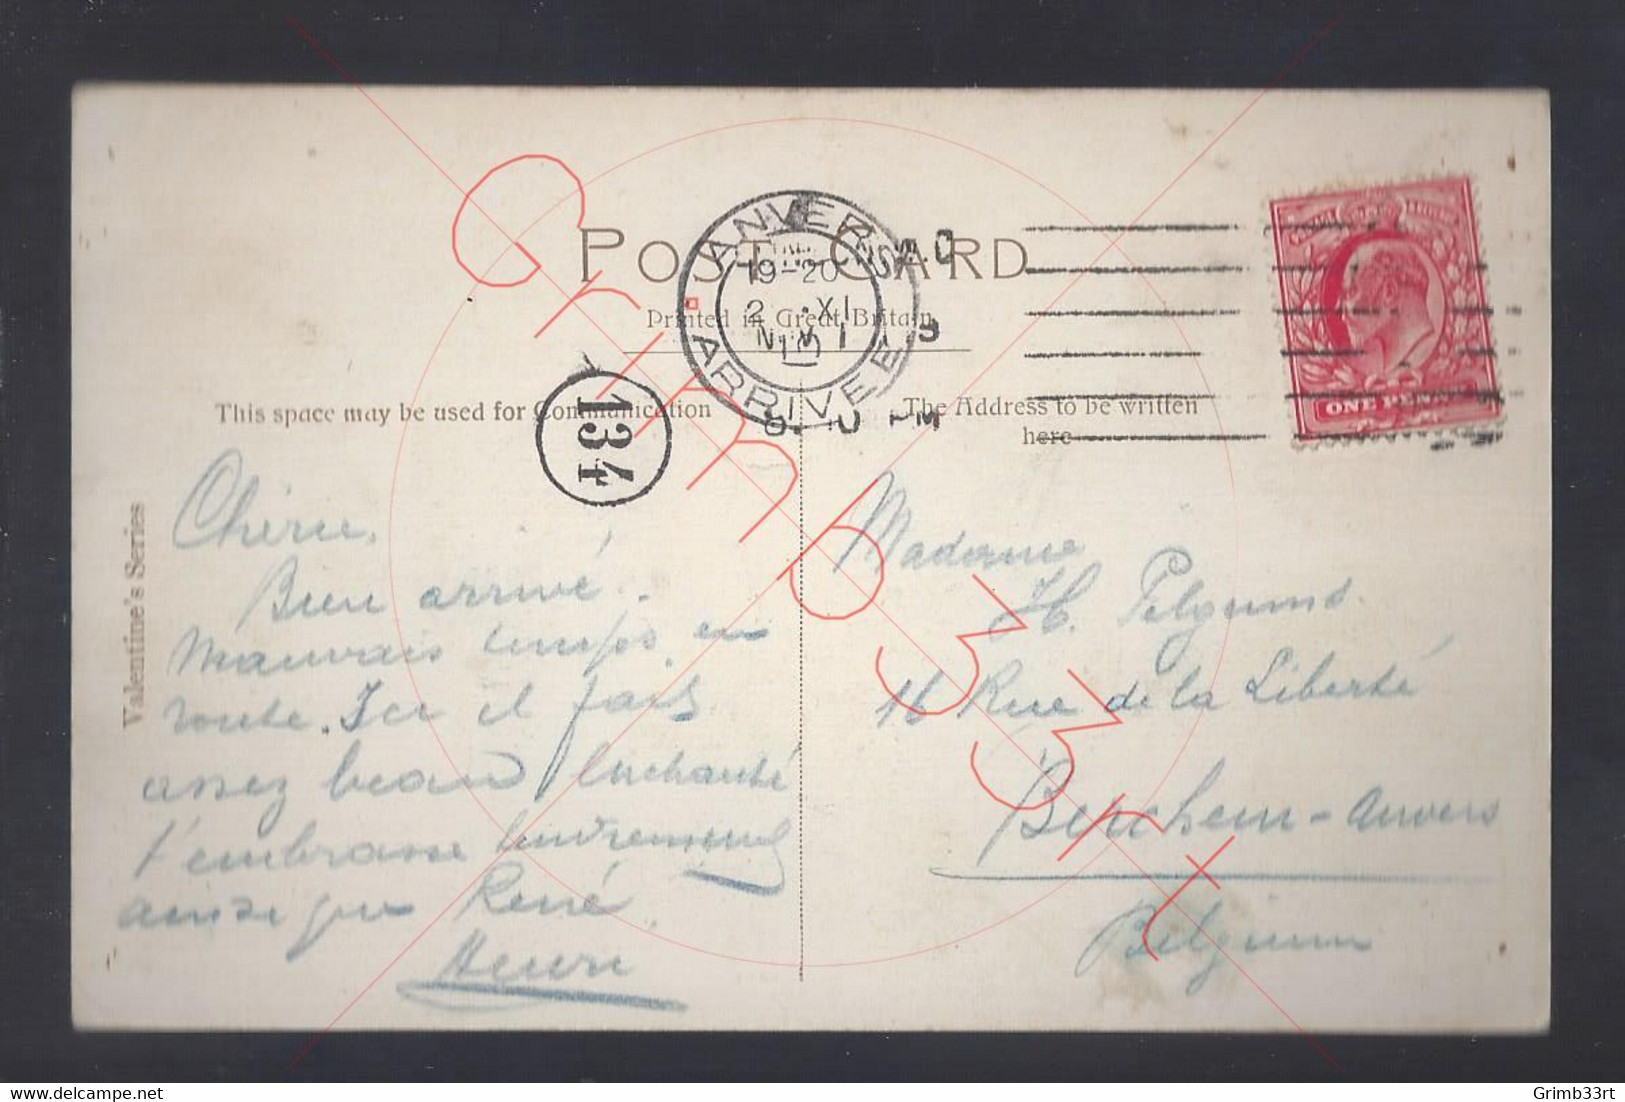 POST CARD
Printed in Great Britain
This space may be used for Communication
The Address to be written
here
Valentine's Series
ANVERS
19-20
2 XI
ARRIVEE
134
ONE PENNY
Chérie,
Bien arrivé.
Mauvais temps en
route. Ici il fait
assez beau Enchanté
t'embrasse tendrement
ainsi que René
Henri
Madame
H. Pelgrims
16 Rue de la Liberté
Berchem-Anvers
Belgium
Grimb33rt
delcampe.net
Grimb33rt